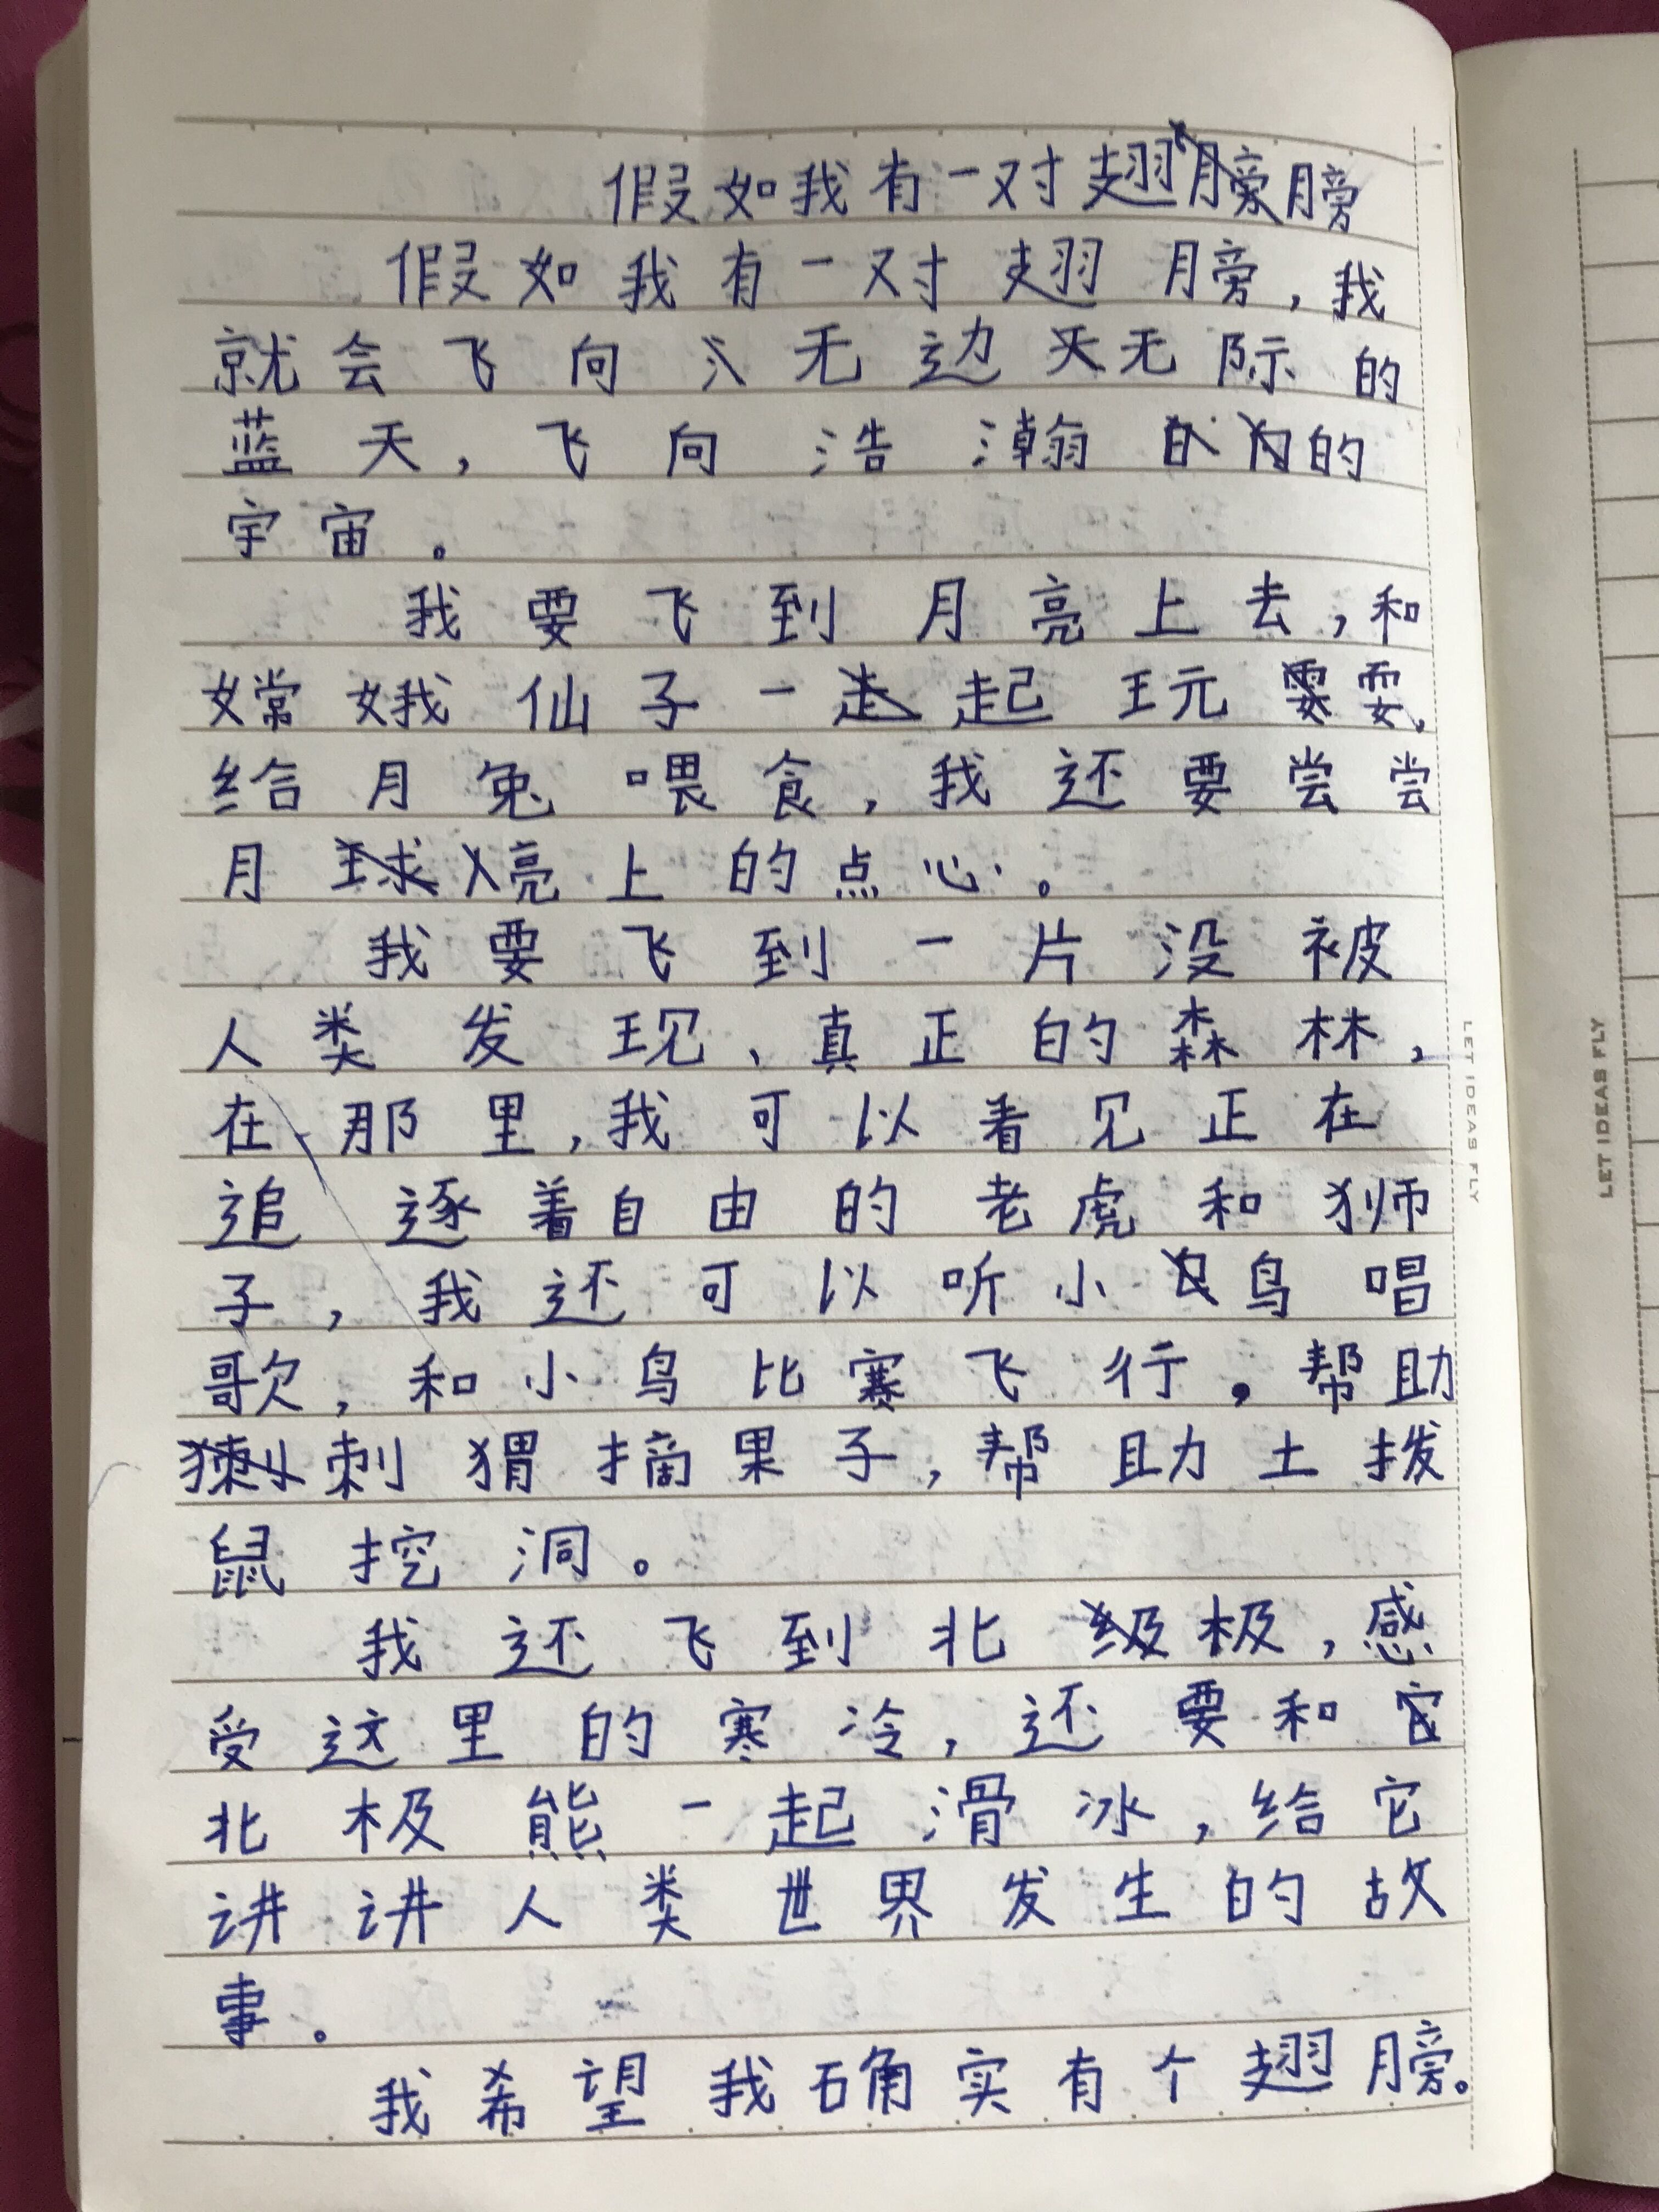 假如我有一对翅膀
假如我有一对翅膀，我
就会飞向无边无际的
蓝天，飞向浩瀚的
宇宙。
我要飞到月亮上去，和
嫦娥仙子一起玩耍，
给月兔喂食，我还要尝尝
月亮上的点心。
我要飞到一片没被
人类发现、真正的森林，
在那里，我可以看见正在
追逐着自由的老虎和狮
子，我还可以听小鸟唱
歌，和小鸟比赛飞行，帮助
刺猬摘果子，帮助土拨
鼠挖洞。
我还飞到北极，感
受这里的寒冷，还要和
北极熊一起滑冰，给它
讲讲人类世界发生的故
事。
我希望我确实有个翅膀。
LET IDEAS FLY
LET IDEAS FLY